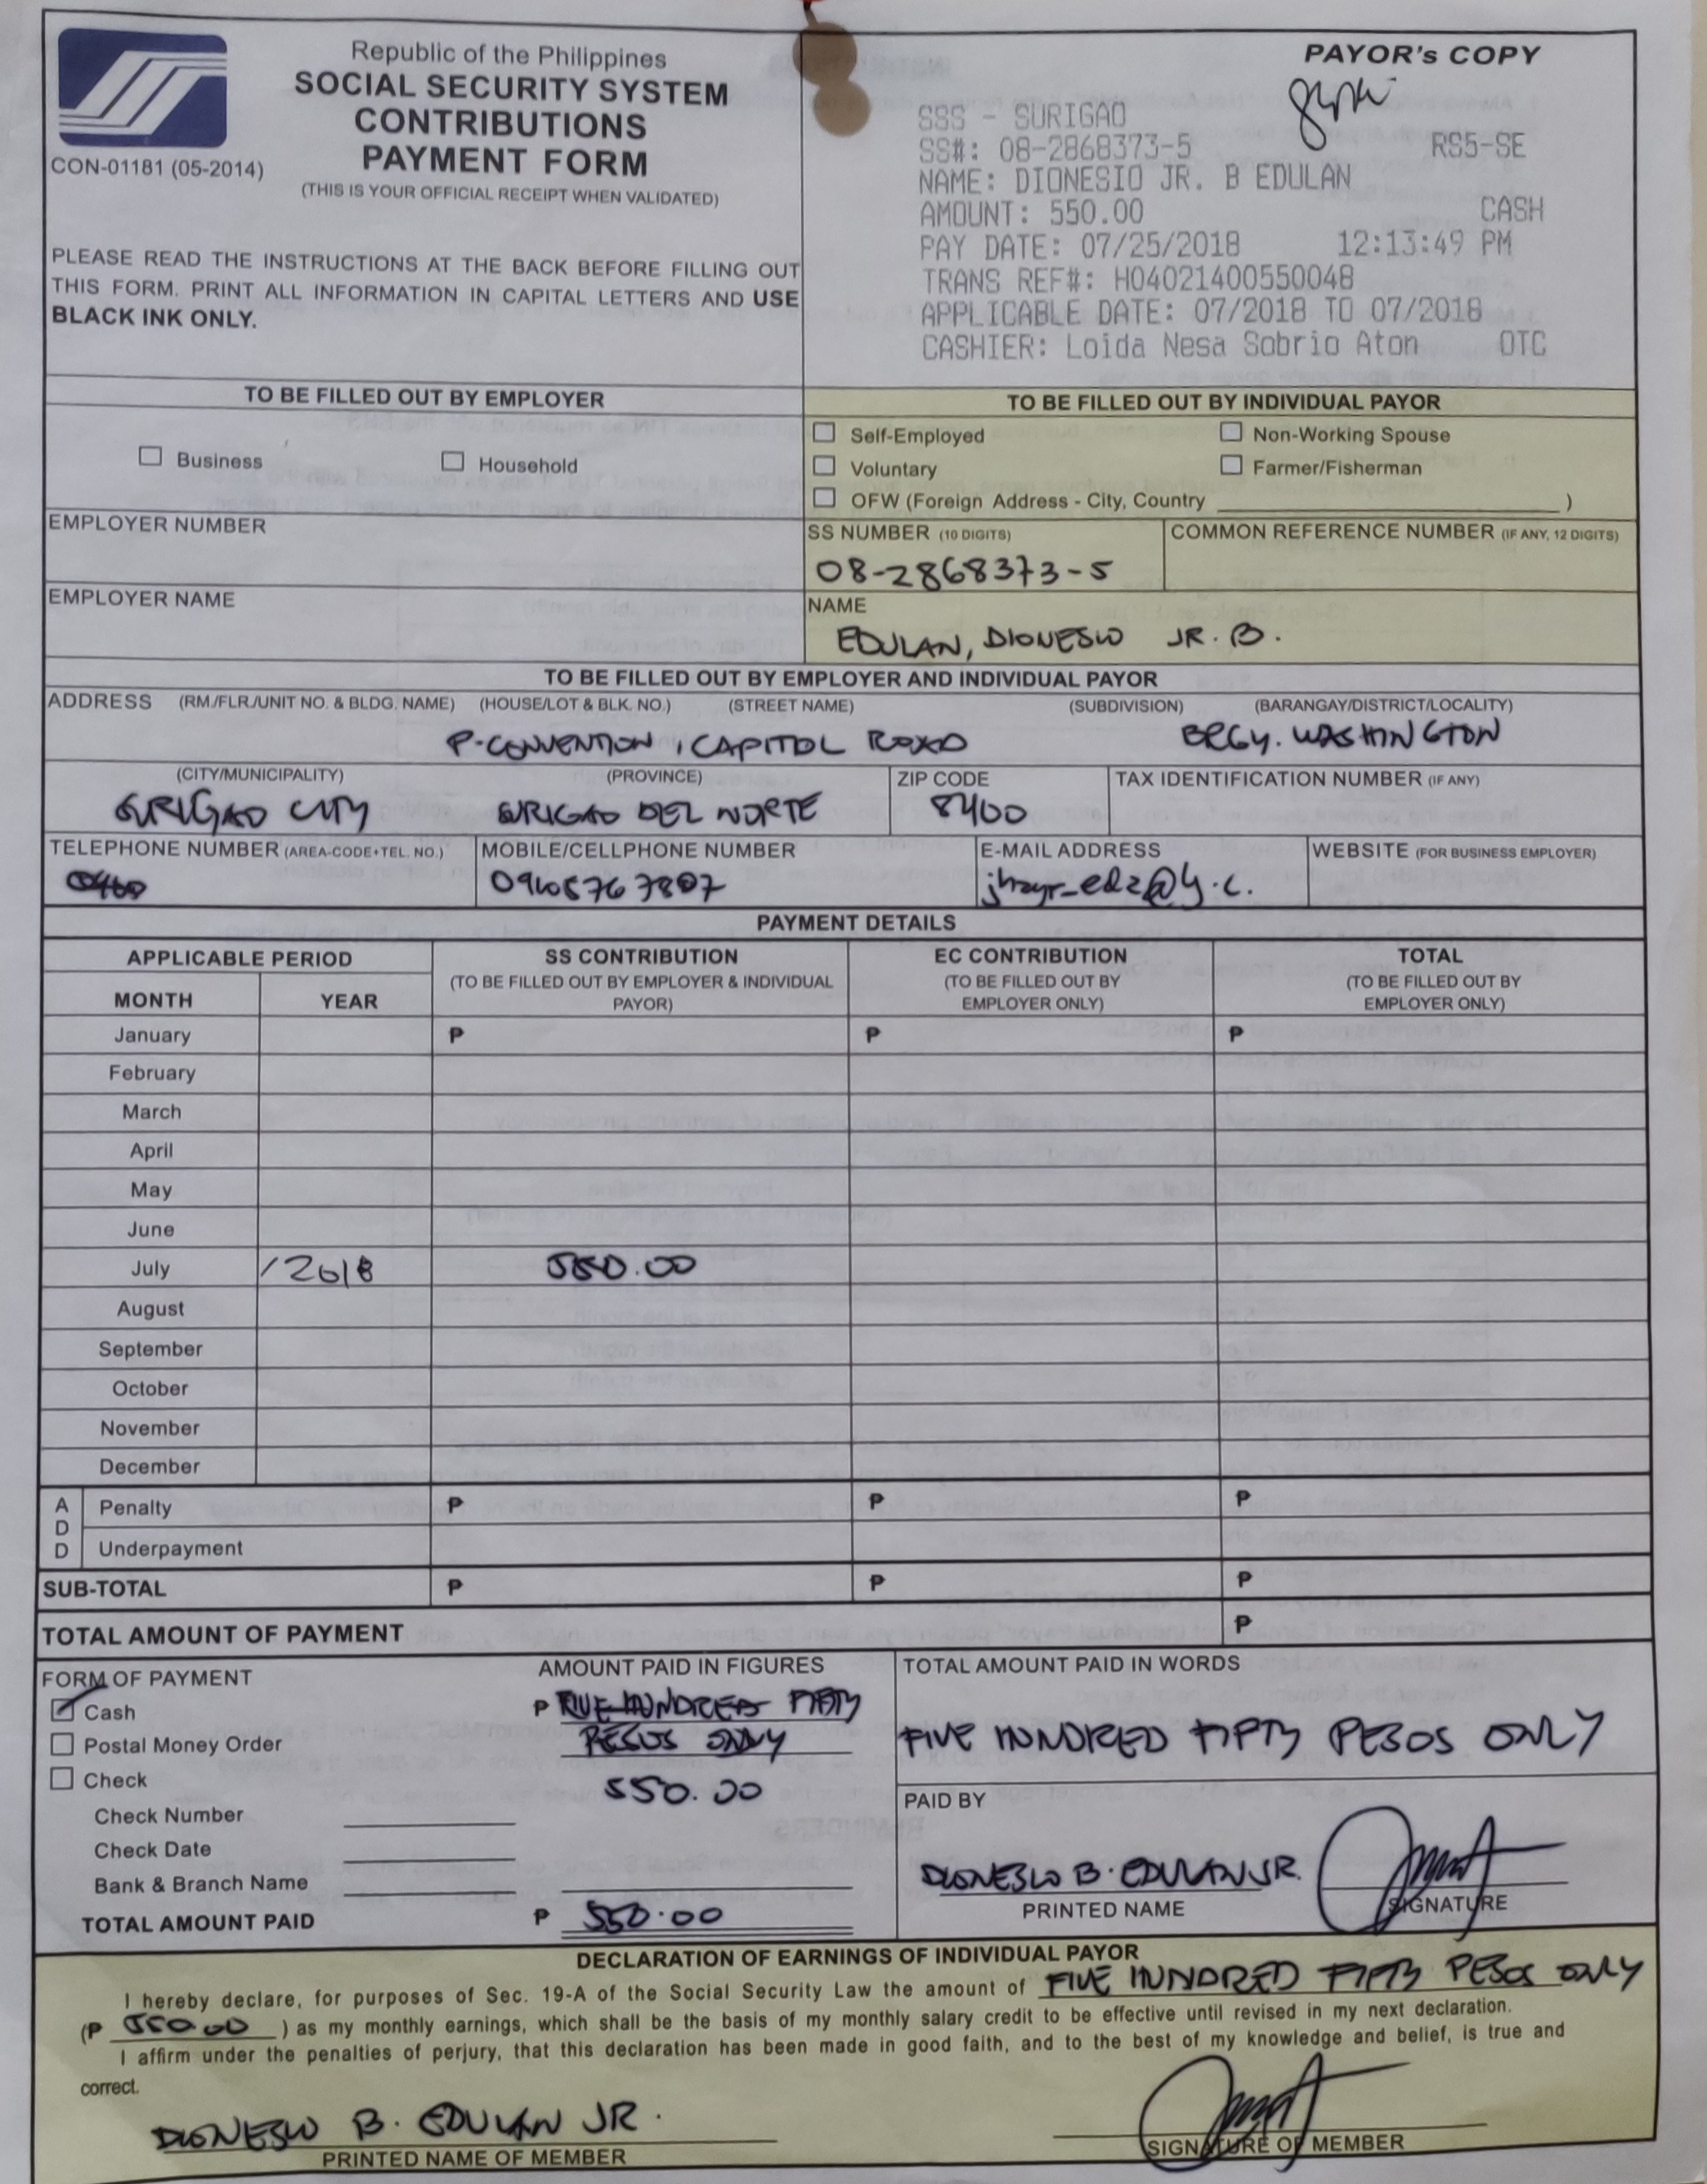 Republic of the Philippines
SOCIAL SECURITY SYSTEM
CONTRIBUTIONS
PAYMENT FORM
(THIS IS YOUR OFFICIAL RECEIPT WHEN VALIDATED)
CON-01181 (05-2014)
PLEASE READ THE INSTRUCTIONS AT THE BACK BEFORE FILLING OUT
THIS FORM. PRINT ALL INFORMATION IN CAPITAL LETTERS AND USE
BLACK INK ONLY.
PAYOR's COPY
SSS - SURIGAO
SS#: 08-2868373-5 RS5-SE
NAME: DIONESIO JR. B EDULAN
AMOUNT: 550.00 CASH
PAY DATE: 07/25/2018 12:13:49 PM
TRANS REF#: H04021400550048
APPLICABLE DATE: 07/2018 TO 07/2018
CASHIER: Loida Nesa Sobrio Aton OTC
TO BE FILLED OUT BY EMPLOYER
Business Household
EMPLOYER NUMBER
EMPLOYER NAME
TO BE FILLED OUT BY INDIVIDUAL PAYOR
Self-Employed Non-Working Spouse
Voluntary Farmer/Fisherman
OFW (Foreign Address - City, Country )
SS NUMBER (10 DIGITS) COMMON REFERENCE NUMBER (IF ANY, 12 DIGITS)
08-2868373-5
NAME
EDULAN, DIONESIO JR. B.
TO BE FILLED OUT BY EMPLOYER AND INDIVIDUAL PAYOR
ADDRESS (RM./FLR./UNIT NO. & BLDG. NAME) (HOUSE/LOT & BLK. NO.) (STREET NAME) (SUBDIVISION) (BARANGAY/DISTRICT/LOCALITY)
P-CONVENTION, CAPITOL ROAD BRGY. WASHINGTON
(CITY/MUNICIPALITY) (PROVINCE) ZIP CODE TAX IDENTIFICATION NUMBER (IF ANY)
SURIGAO CITY SURIGAO DEL NORTE 8400
TELEPHONE NUMBER (AREA-CODE+TEL. NO.) MOBILE/CELLPHONE NUMBER E-MAIL ADDRESS WEBSITE (FOR BUSINESS EMPLOYER)
jhayr_edz@y.c.
PAYMENT DETAILS
APPLICABLE PERIOD SS CONTRIBUTION EC CONTRIBUTION TOTAL
(TO BE FILLED OUT BY EMPLOYER & INDIVIDUAL PAYOR) (TO BE FILLED OUT BY EMPLOYER ONLY) (TO BE FILLED OUT BY EMPLOYER ONLY)
MONTH YEAR
January ₱ ₱ ₱
February
March
April
May
June
July /2018 550.00
August
September
October
November
December
ADD
Penalty ₱ ₱ ₱
Underpayment
SUB-TOTAL ₱ ₱ ₱
TOTAL AMOUNT OF PAYMENT ₱
FORM OF PAYMENT AMOUNT PAID IN FIGURES
Cash ₱ FIVE HUNDRED FIFTY
Postal Money Order PESOS ONLY
Check 550.00
Check Number
Check Date
Bank & Branch Name
TOTAL AMOUNT PAID ₱ 550.00
TOTAL AMOUNT PAID IN WORDS
FIVE HUNDRED FIFTY PESOS ONLY
PAID BY
DIONESIO B. EDULAN JR.
PRINTED NAME SIGNATURE
DECLARATION OF EARNINGS OF INDIVIDUAL PAYOR
I hereby declare, for purposes of Sec. 19-A of the Social Security Law the amount of FIVE HUNDRED FIFTY PESOS ONLY
(₱ 550.00 ) as my monthly earnings, which shall be the basis of my monthly salary credit to be effective until revised in my next declaration.
I affirm under the penalties of perjury, that this declaration has been made in good faith, and to the best of my knowledge and belief, is true and
correct.
DIONESIO B. EDULAN JR.
PRINTED NAME OF MEMBER SIGNATURE OF MEMBER